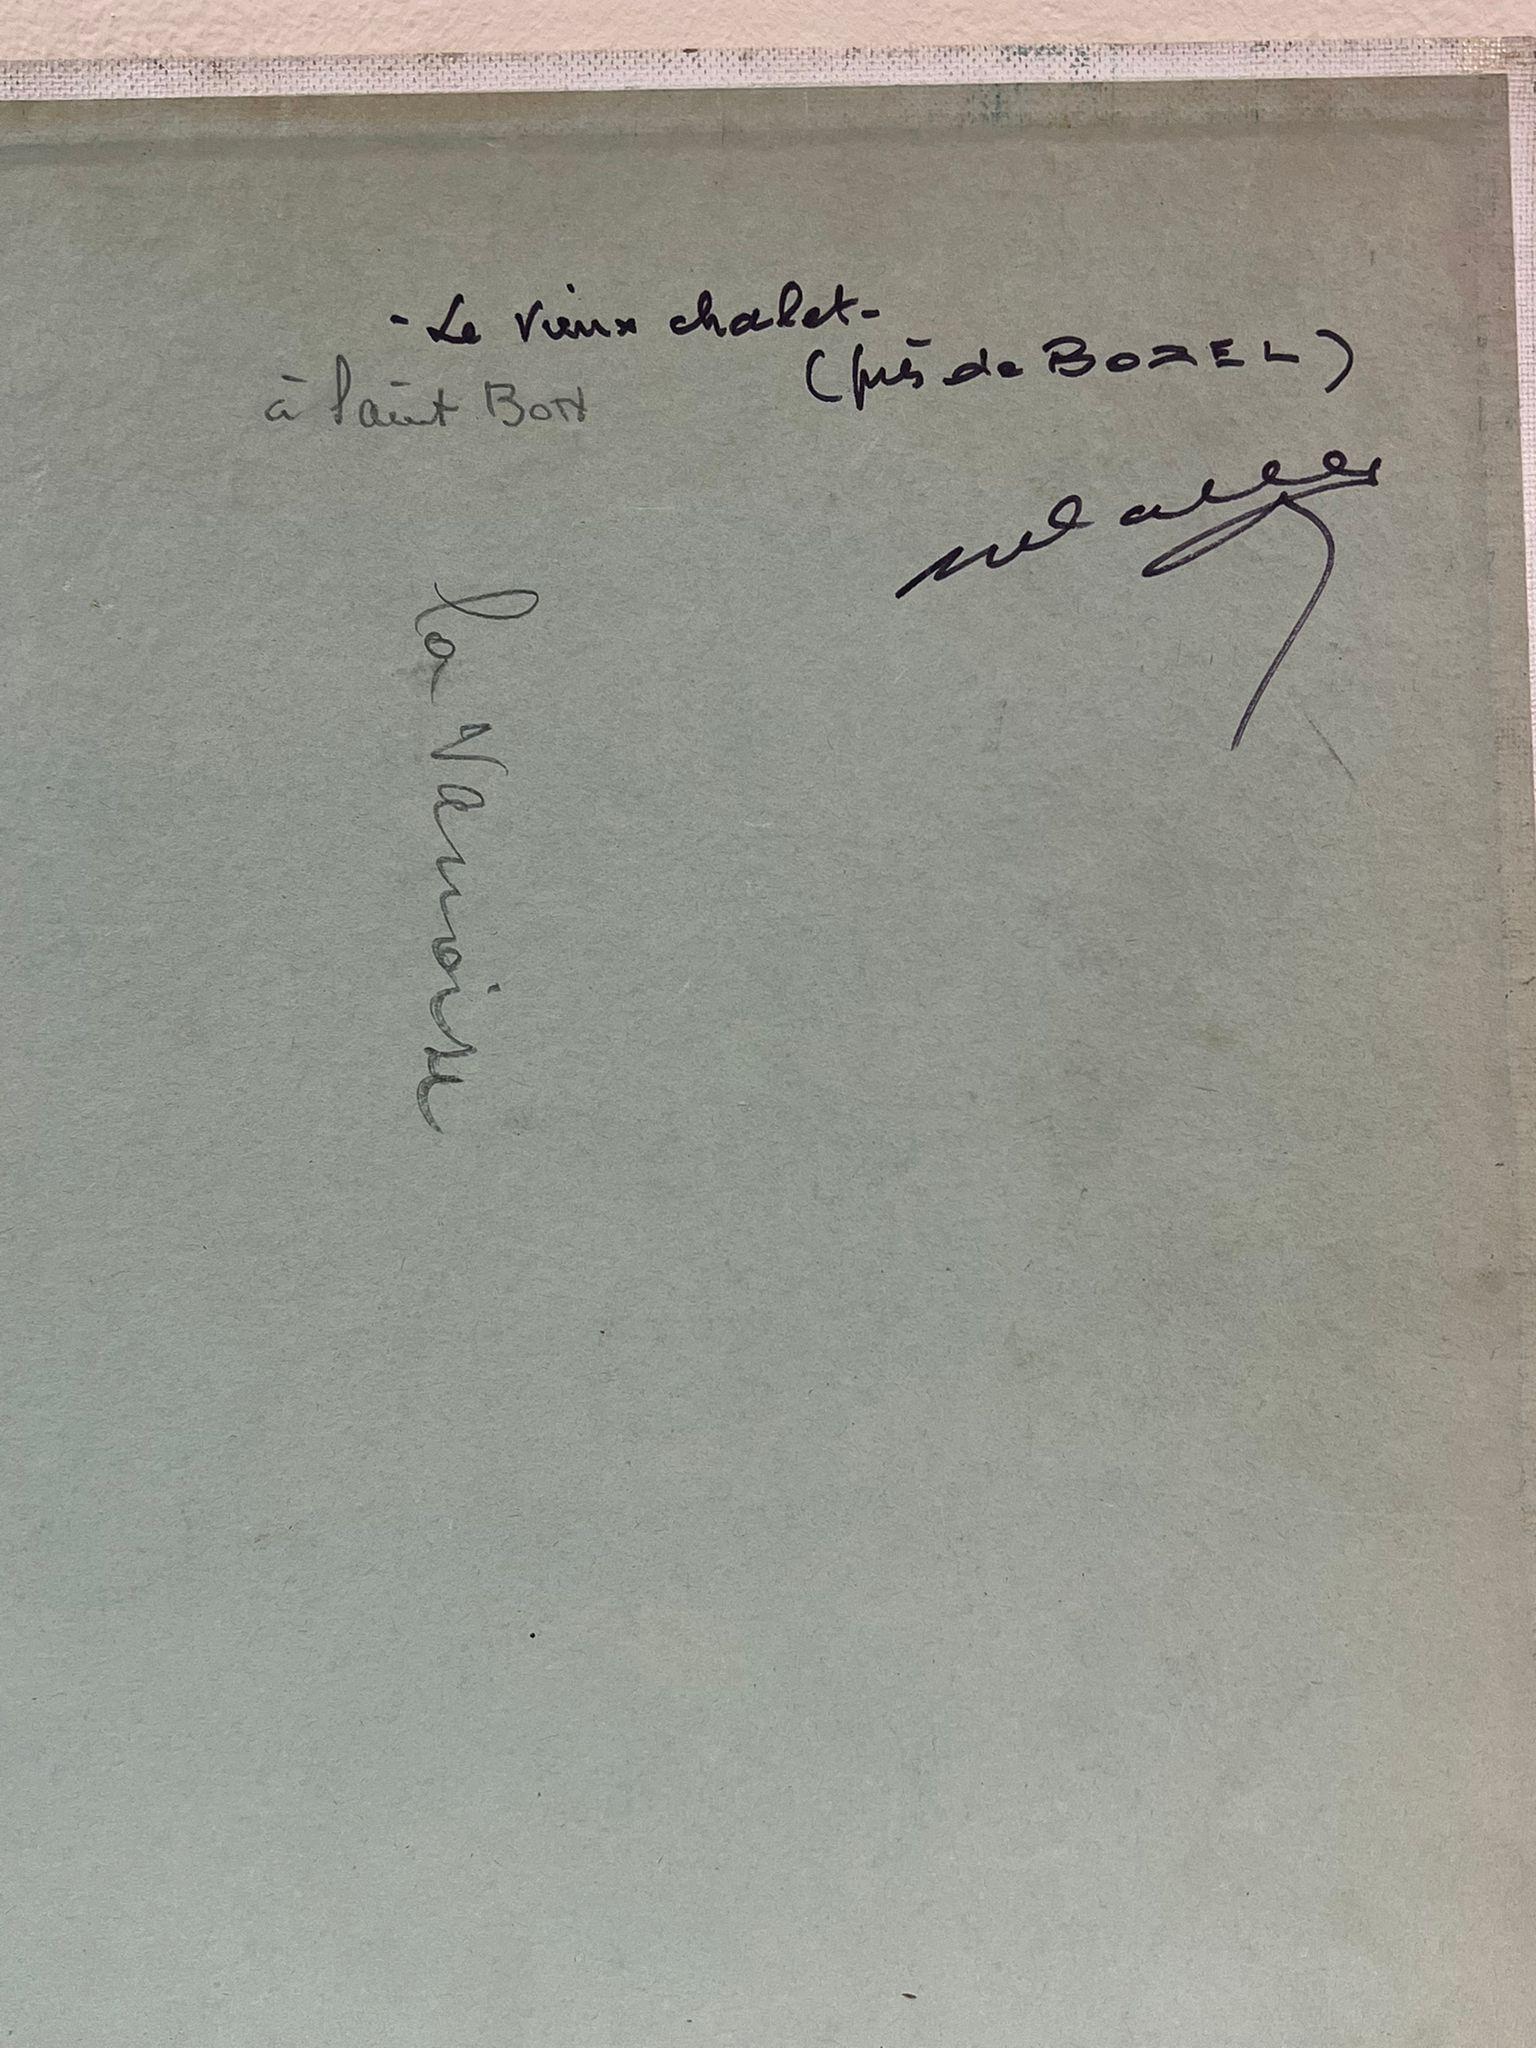 - Le vieux chalet -
(près de BOZEL)
à Saint Bon
la Vanoise